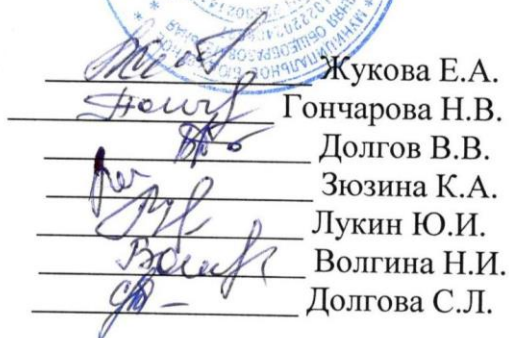 МУНИЦИПАЛЬНОЕ
Жукова Е.А.
Гончарова Н.В.
Долгов В.В.
Зюзина К.А.
Лукин Ю.И.
Волгина Н.И.
Долгова С.Л.